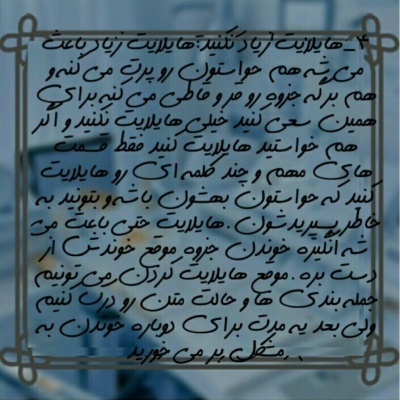 ۴_هایلایت زیاد نکنید:هایلایت زیاد باعث
می شه هم حواستون رو پرت می کنه و
هم برگه جزوه رو قر و قاطی می کنه برای
همین سعی کنید خیلی هایلایت نکنید و اگر
هم خواستید هایلایت کنید فقط قسمت
های مهم و چند کلمه ای رو هایلایت
کنید که حواستون بهشون باشه و بتونید به
خاطر بسپریدشون.هایلایت حتی باعث می
شه انگیزه خوندن جزوه موقع خوندنش از
دست بره.موقع هایلایت کردن می تونیم
جمله بندی ها و حالت متن رو درک کنیم
ولی بعد یه مدت برای دوباره خوندن به
مشکل بر می خورید.